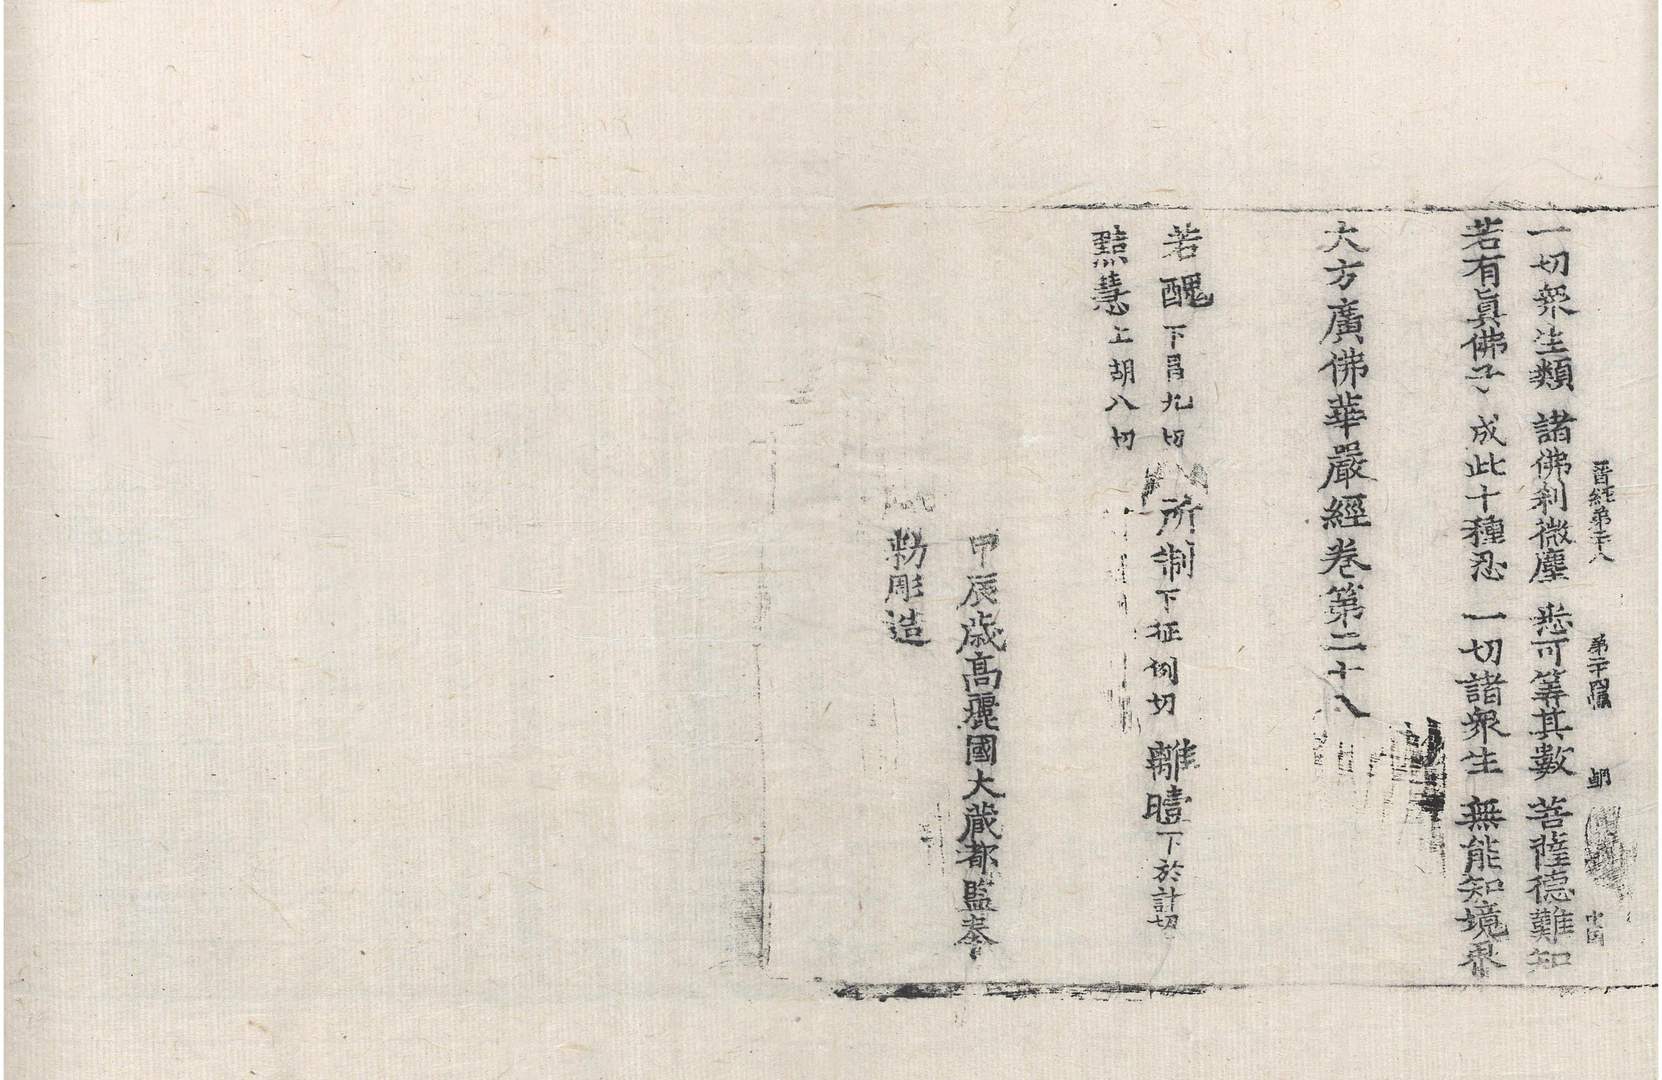 晉經第二十八 第二十四張
一切衆生類 諸佛刹微塵 悉可等其數 菩薩德難知
若有眞佛子 成此十種忍 一切諸衆生 無能知境界
大方廣佛華嚴經卷第二十八
若醜下昌九切 所制下征例切 離曀下於計切
黠慧上胡八切
甲辰歳高麗國大藏都監奉
勅彫造